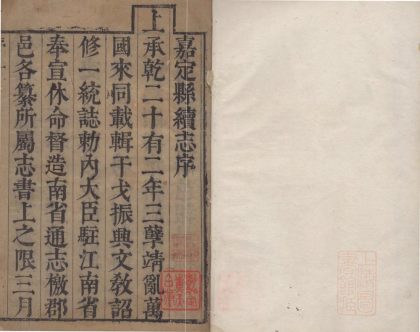 嘉定縣續志序
上承乾二十有二年三孽靖亂萬
國來同載輯干戈振興文敎詔
修一統誌勅內大臣駐江南省
奉宣休命督造南省通志檄郡
邑各纂所属志書上之限三月